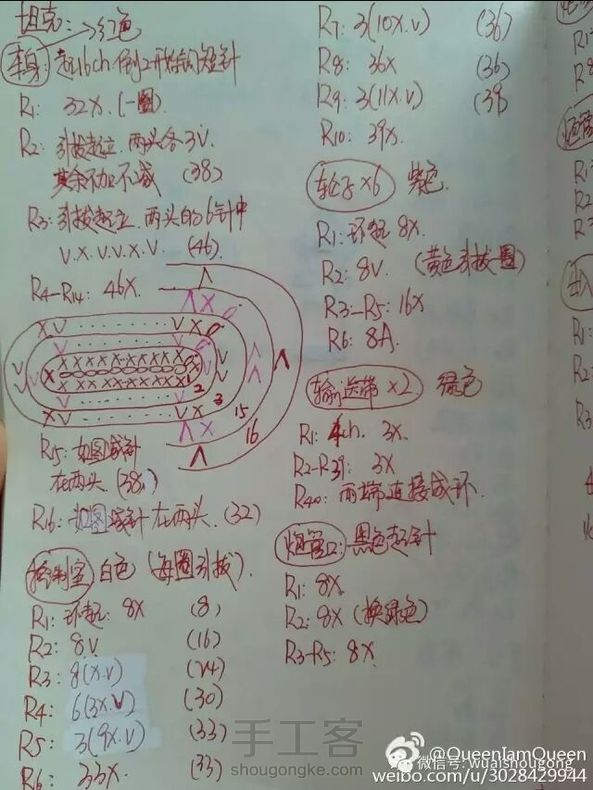 坦克: → 红色
车身: 起16ch 倒2开始钩短针
R1: 32X. (一圈)
R2: 引拔起立. 两头各3V.
其余不加不减 (38)
R3: 引拔起立. 两头的6针中
V.X.V.V.X.V. (46)
R4-R14: 46X.
1
2
3
15
16
R15: 如图减针
在两头. (38)
R16: 如图减针在两头. (32)
控制室 白色 (每圈引拔).
R1: 环起: 8X (8)
R2: 8V (16)
R3: 8(X.V) (24)
R4: 6(3X.V) (30)
R5: 3(9X.V) (33)
R6: 33X. (33)
R7: 3(10X.V) (36)
R8: 36X (36)
R9: 3(11X.V) (39)
R10: 39X.
轮子 x6 紫色.
R1: 环起 8X.
R2: 8V. (黄色引拔一圈)
R3-R5: 16X
R6: 8A.
输送带 x2 绿色
R1: 4ch. 3X.
R2-R39: 3X
R40: 两端连接成环.
炮管口: 黑色起针
R1: 8X.
R2: 8X (换绿色)
R3-R5: 8X.
手工客
shougongke.com
@QueenIamQueen
微信号: wuaishougong
weibo.com/u/3028429944